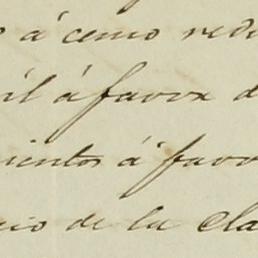 á cemo redu
il á favor d
ientos á favo
cio de la cla